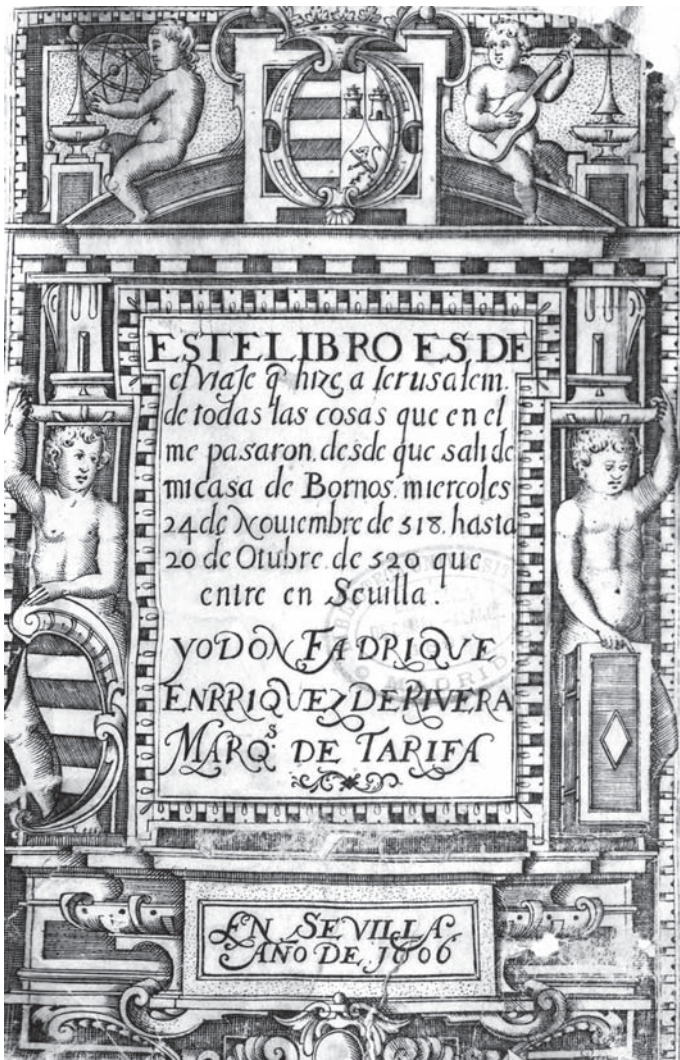 ESTE LIBRO ES DE
el viaje q̃ hize a Ierusalem.
de todas las cosas que en el
me pasaron. desde que sali de
mi casa de Bornos. miercoles
24 de Nouiembre de 518. hasta
20 de Otubre. de 520 que
entre en Seuilla.
YO DON FADRIQVE
ENRRIQVEZ DE RIVERA
MARQS. DE TARIFA
EN SEVILLA.
AÑO DE, 1606
MADRID